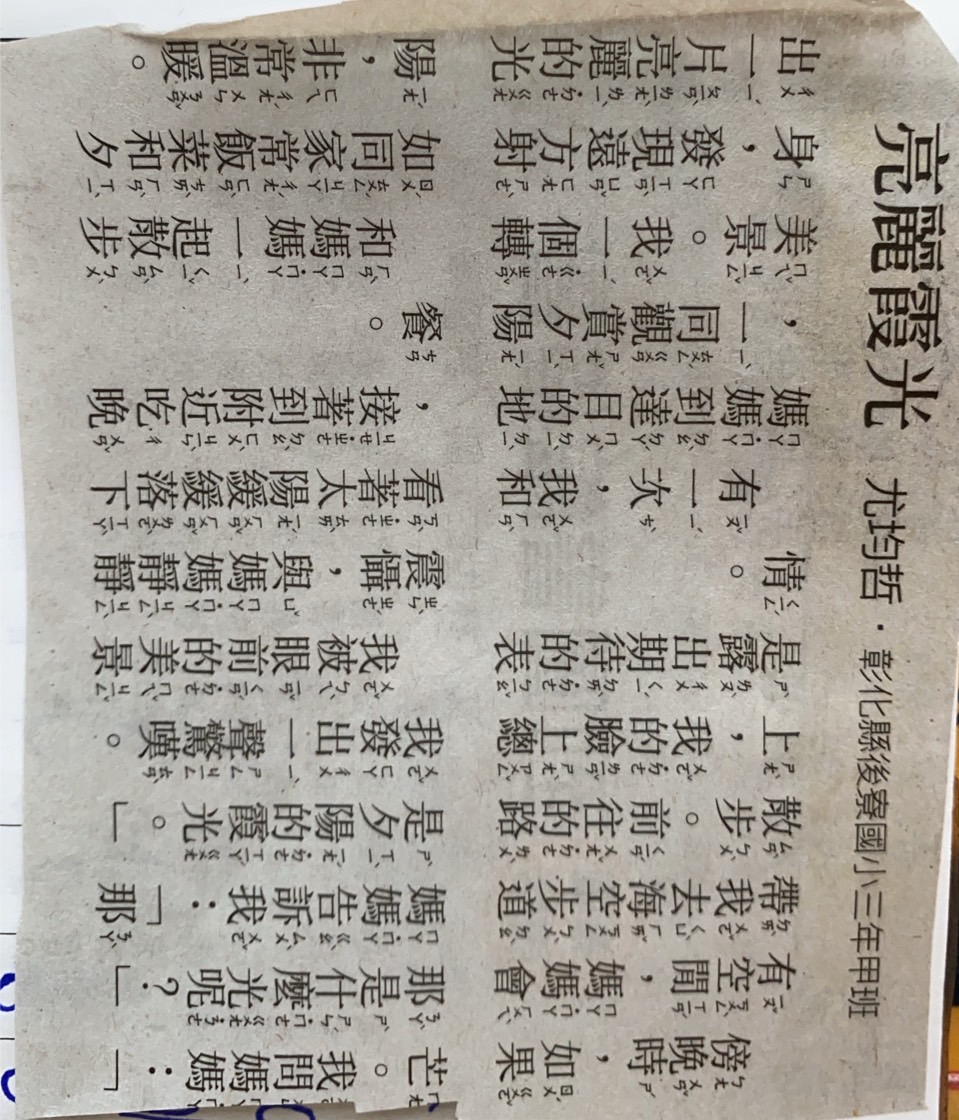 亮麗霞光 尤均哲．彰化縣後寮國小三年甲班
傍晚時，如果
有空閒，媽媽會
帶我去海空步道
散步。前往的路
上，我的臉上總
是露出期待的表
情。
有一次，我和
媽媽到達目的地
，一同觀賞夕陽
美景。我一個轉
身，發現遠方射
出一片亮麗的光
芒。我問媽媽：「
那是什麼光呢？」
媽媽告訴我：「那
是夕陽的霞光。」
我發出一聲驚嘆。
我被眼前的美景
震懾，與媽媽靜靜
看著太陽緩緩落下
，接著到附近吃晚
餐。
和媽媽一起散步
如同家常飯菜和夕
陽，非常溫暖。